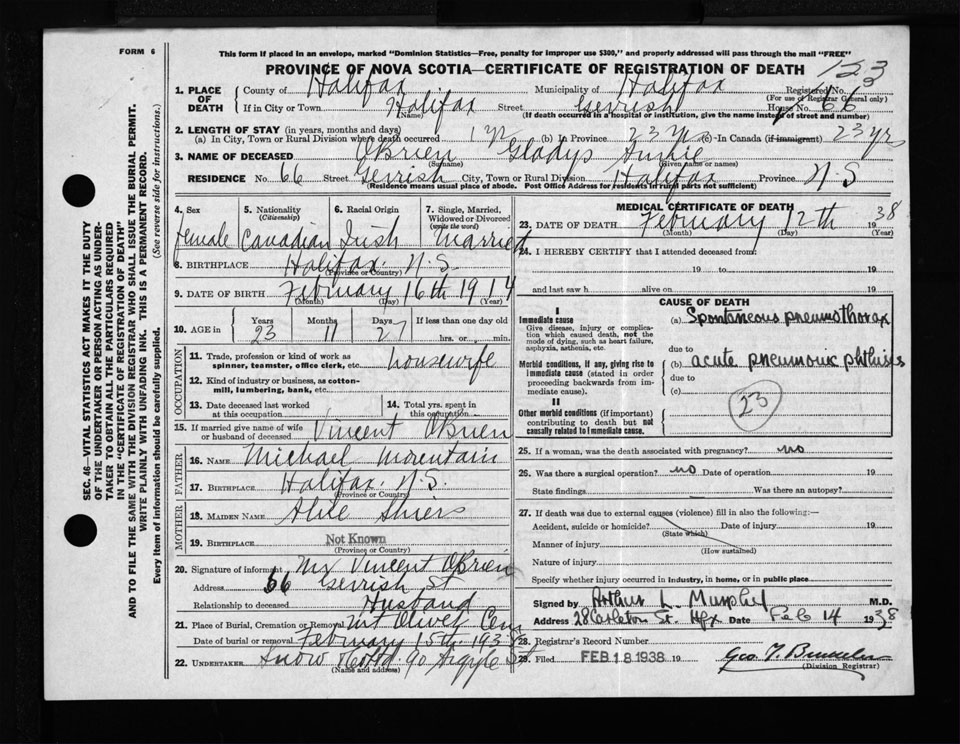 FORM 6
This form if placed in an envelope, marked "Dominion Statistics—Free, penalty for improper use $300," and properly addressed will pass through the mail "FREE"
PROVINCE OF NOVA SCOTIA—CERTIFICATE OF REGISTRATION OF DEATH
123
1. PLACE OF DEATH
County of Halifax Municipality of Halifax Registered No.
(For use of Registrar General only)
If in City or Town Halifax Street Gerrish House No. 66
(Name) (If death occurred in a hospital or institution, give the name instead of street and number)
2. LENGTH OF STAY (in years, months and days)
(a) In City, Town or Rural Division where death occurred 1 yr (b) In Province 23 yrs (c) In Canada (if immigrant) 23 yrs
3. NAME OF DECEASED O'Brien Gladys Annie
(Surname) (Given name or names)
RESIDENCE No. 66 Street Gerrish City, Town or Rural Division Halifax Province N.S
(Residence means usual place of abode. Post Office Address for residents in rural parts not sufficient)
4. Sex female
5. Nationality (Citizenship) Canadian
6. Racial Origin Irish
7. Single, Married, Widowed or Divorced (write the word) Married
8. BIRTHPLACE Halifax N.S.
(Province or Country)
9. DATE OF BIRTH February 16th 1914
(Month) (Day) (Year)
10. AGE in Years 23 Months 11 Days 27 If less than one day old
hrs. or min.
OCCUPATION
11. Trade, profession or kind of work as spinner, teamster, office clerk, etc. housewife
12. Kind of industry or business, as cotton-mill, lumbering, bank, etc.
13. Date deceased last worked at this occupation
14. Total yrs. spent in this occupation
15. If married give name of wife or husband of deceased Vincent O'Brien
FATHER
16. NAME Michael Mountain
17. BIRTHPLACE Halifax N.S.
(Province or Country)
MOTHER
18. MAIDEN NAME Alice
19. BIRTHPLACE Not Known
(Province or Country)
20. Signature of informant Mr Vincent O'Brien
Address 66 Gerrish St
Relationship to deceased Husband
21. Place of Burial, Cremation or Removal Mt Olivet Cem
Date of burial or removal February 15th 1938
22. UNDERTAKER Snow 90 Argyle St
(Name and address)
MEDICAL CERTIFICATE OF DEATH
23. DATE OF DEATH February 12th 38
(Month) (Day) (Year)
24. I HEREBY CERTIFY that I attended deceased from:
19 to 19
and last saw h alive on 19
CAUSE OF DEATH
I
Immediate cause
Give disease, injury or complication which caused death, not the mode of dying, such as heart failure, asphyxia, asthenia, etc.
(a) Spontaneous pneumothorax
due to
Morbid conditions, if any, giving rise to immediate cause (stated in order proceeding backwards from immediate cause).
(b) acute pneumonic phthisis
due to
(c)
II
Other morbid conditions (if important) contributing to death but not causally related to immediate cause.
23
25. If a woman, was the death associated with pregnancy? no
26. Was there a surgical operation? no Date of operation 19
State findings Was there an autopsy?
27. If death was due to external causes (violence) fill in also the following:—
Accident, suicide or homicide? Date of injury 19
(State which)
Manner of injury
(How sustained)
Nature of injury
Specify whether injury occurred in industry, in home, or in public place
Signed by Arthur L. Murphy M.D.
Address 28 Carleton St. Hfx Date Feb 14 1938
28. Registrar's Record Number
29. Filed FEB 18 1938 19
(Division Registrar)
SEC. 46—VITAL STATISTICS ACT MAKES IT THE DUTY OF THE UNDERTAKER OR PERSON ACTING AS UNDERTAKER TO OBTAIN ALL THE PARTICULARS REQUIRED IN THE "CERTIFICATE OF REGISTRATION OF DEATH"
AND TO FILE THE SAME WITH THE DIVISION REGISTRAR WHO SHALL ISSUE THE BURIAL PERMIT.
WRITE PLAINLY WITH UNFADING INK. THIS IS A PERMANENT RECORD.
Every item of information should be carefully supplied. (See reverse side for instructions.)